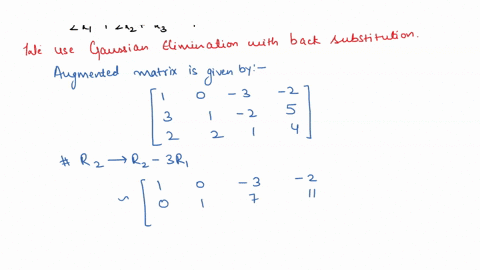 We use Gaussian Elimination with back substitution.
Augmented matrix is given by:-
1 0 -3 -2
3 1 -2 5
2 2 1 4
# R2 → R2 - 3R1
~ 1 0 -3 -2
0 1 7 11